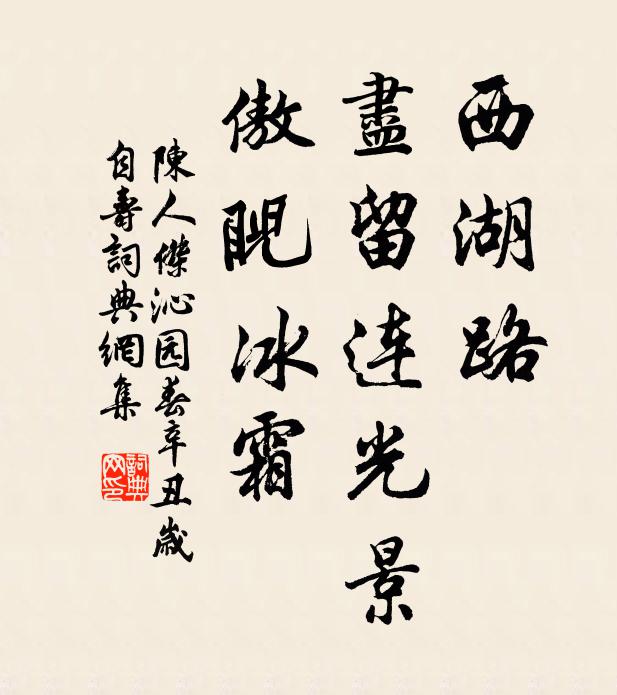 西湖路
盡留连光景
傲睨冰霜
陳人傑沁园春辛丑歲
自壽詞典網集
詞典
网印